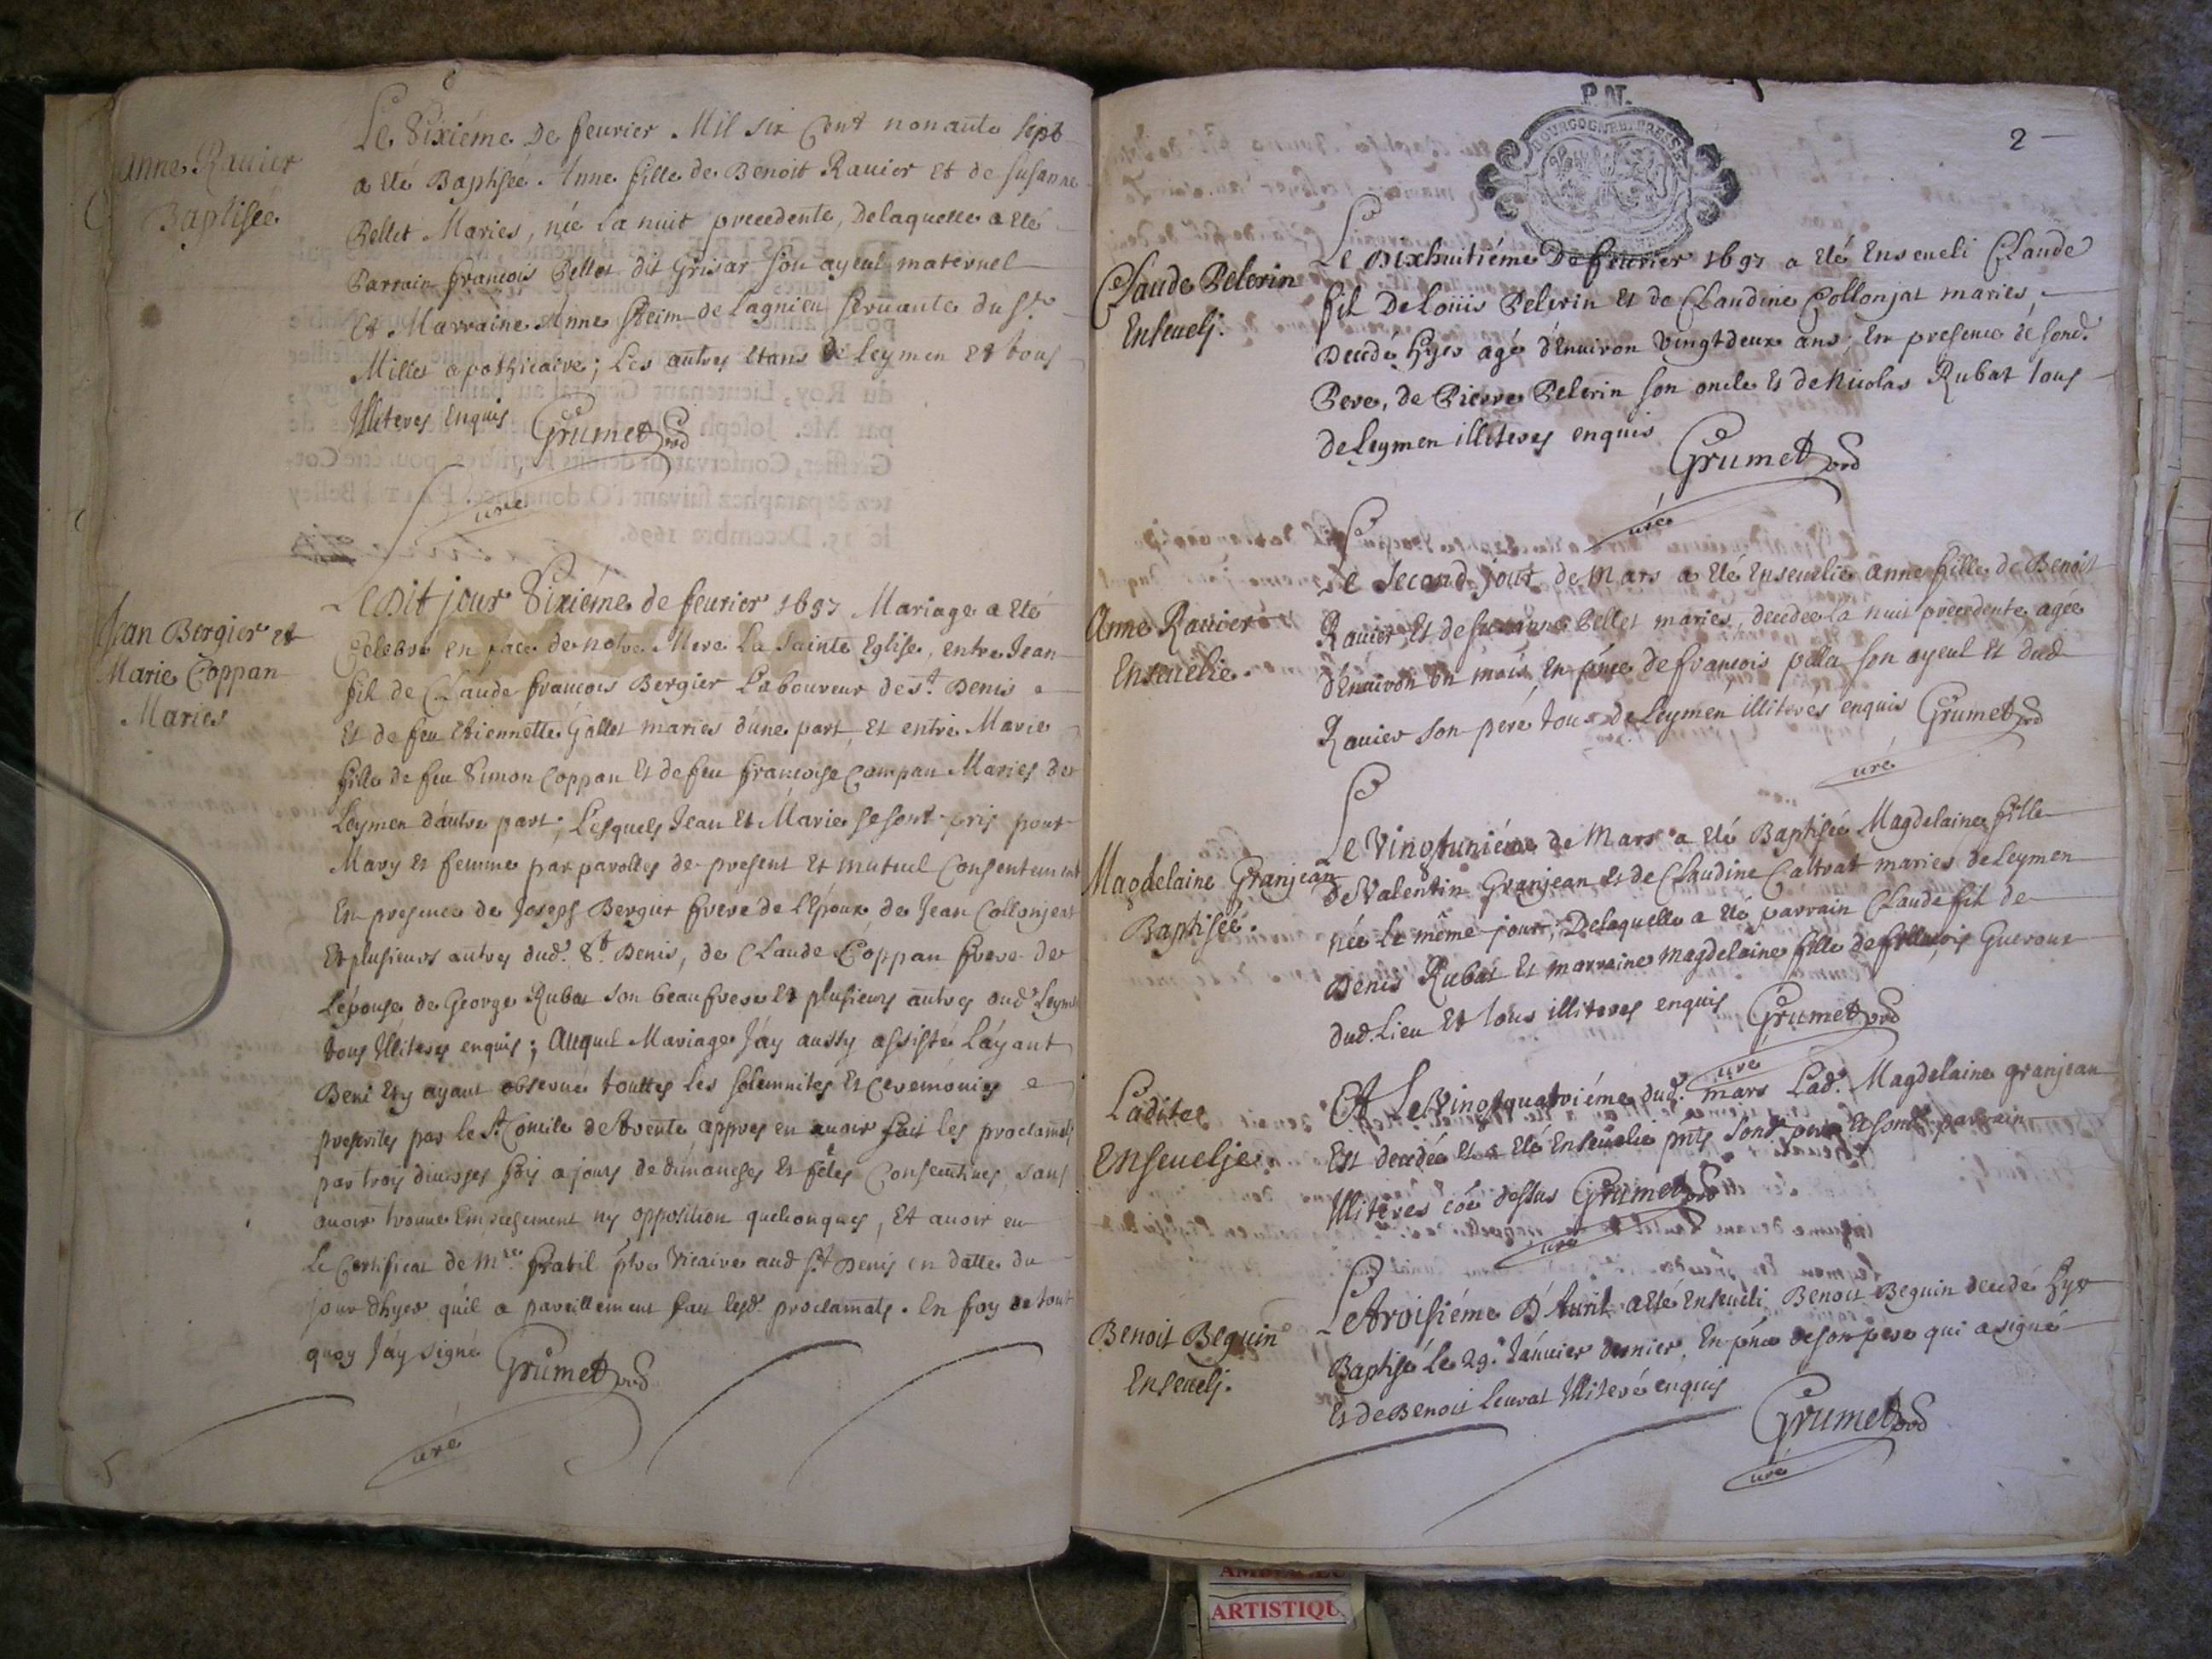 Anne Rauier
Baptisée
Le Sixiéme De feurier Mil six Cent nonante sept
a eté Baptisée Anne fille de Benoit Rauier et de Susanne
Pellet Maries, née La nuit precedente, De laquelle a eté
Parrain francois Pellet dit Grisar son ayeul maternel
Et Marraine Anne de Lagnieu seruante du Sr.
Millet apothicaire; Les autres etans de Leymen et tous
Illiteres enquis Grumet
curé
Jean Bergier et
Marie Coppan
Maries
Ledit jour Sixiéme de feurier 1697 Mariage a eté
Celebré en face de notre Mere La Sainte Eglise, entre Jean
fil de Claude francois Bergier Laboureur de St. Denis
Et de feu Etiennette Gallet maries d'une part, Et entre Marie
fille de feu Simon Coppan Et de feu francoise Compan Maries de
Leymen d'autre part; Lesquels Jean Et Marie se sont pris pour
Mary et femme par parolles de present Et mutuel Consentement
En presence de Joseph Bergier frere de l'Epoux de Jean Collonjat
Et plusieurs autres dud. St. Denis, de Claude Coppan frere de
L'épouse de George Rubat son beaufrere Et plusieurs autres dud. Leymen
tous Illiteres enquis; Auquel Mariage J'ay aussy assisté L'ayant
Beni Et y ayant obserué touttes Les solemnites Et ceremonies
prescrites par le St. Concile de trente appres en auoir fait les proclamats
par trois diuerses fois a jours de dimanches et fêtes Consecutiues, sans
auoir trouué Empechement ny opposition quelconques, Et auoir eu
Le Certificat de Mre. ptre Vicaire aud St Denis en datte du
jour d'hyer qu'il a pareillement fait lesd. proclamats. En foy de tout
quoy J'ay signé Grumet
curé
P. N.
BOURGOGNE BRESSE
2
Claude Pelerin
Enseueli.
Le Dixhuitiéme De feurier 1697 a eté Enseueli Claude
fil De Loüis Pelerin Et de Claudine Collonjat maries,
Decedé hyer agé d'Enuiron vingt deux ans; En presence de sond.
Pere, de Pierre Pelerin son oncle Et de Nicolas Rubat tous
de Leymen illiteres enquis Grumet
curé
Anne Rauier
Enseuelie.
Le Second jour de Mars a eté Enseuelie Anne fille de Benoit
Rauier Et de Susanne Pellet maries, decedée la nuit precedente agée
d'Enuiron un mois, En pnce de francois son ayeul Et dud
Rauier son peré tous de Leymen illiteres enquis Grumet
curé
Magdelaine Granjean
Baptisée.
Le Vingtuniéme de Mars a eté Baptisée Magdelaine fille
de Valentin Granjean et de Claudine Caltrat maries de Leymen
née Le même jour, De laquelle a eté parrain Claude fil de
Denis Rubat Et marraine Magdelaine fille de
dud. Lieu Et tous illiteres enquis Grumet
curé
Ladite
Enseuelie
Et Le Vingtquatriéme dud. mars Lad. Magdelaine granjean
Est decedée Et a eté Enseuelie pnts sond. pere Et sond. parrain
Illiteres coe dessus Grumet
curé
Benoit Beguin
Enseueli.
Le troisiéme D'Auril a eté Enseueli Benoit Beguin decedé hyer
Baptisé Le 29.e Januier dernier, En pnce de son pere qui a signé
Et de Benoit Leurat Illiteré enquis
Grumet
curé
ARTISTIQU